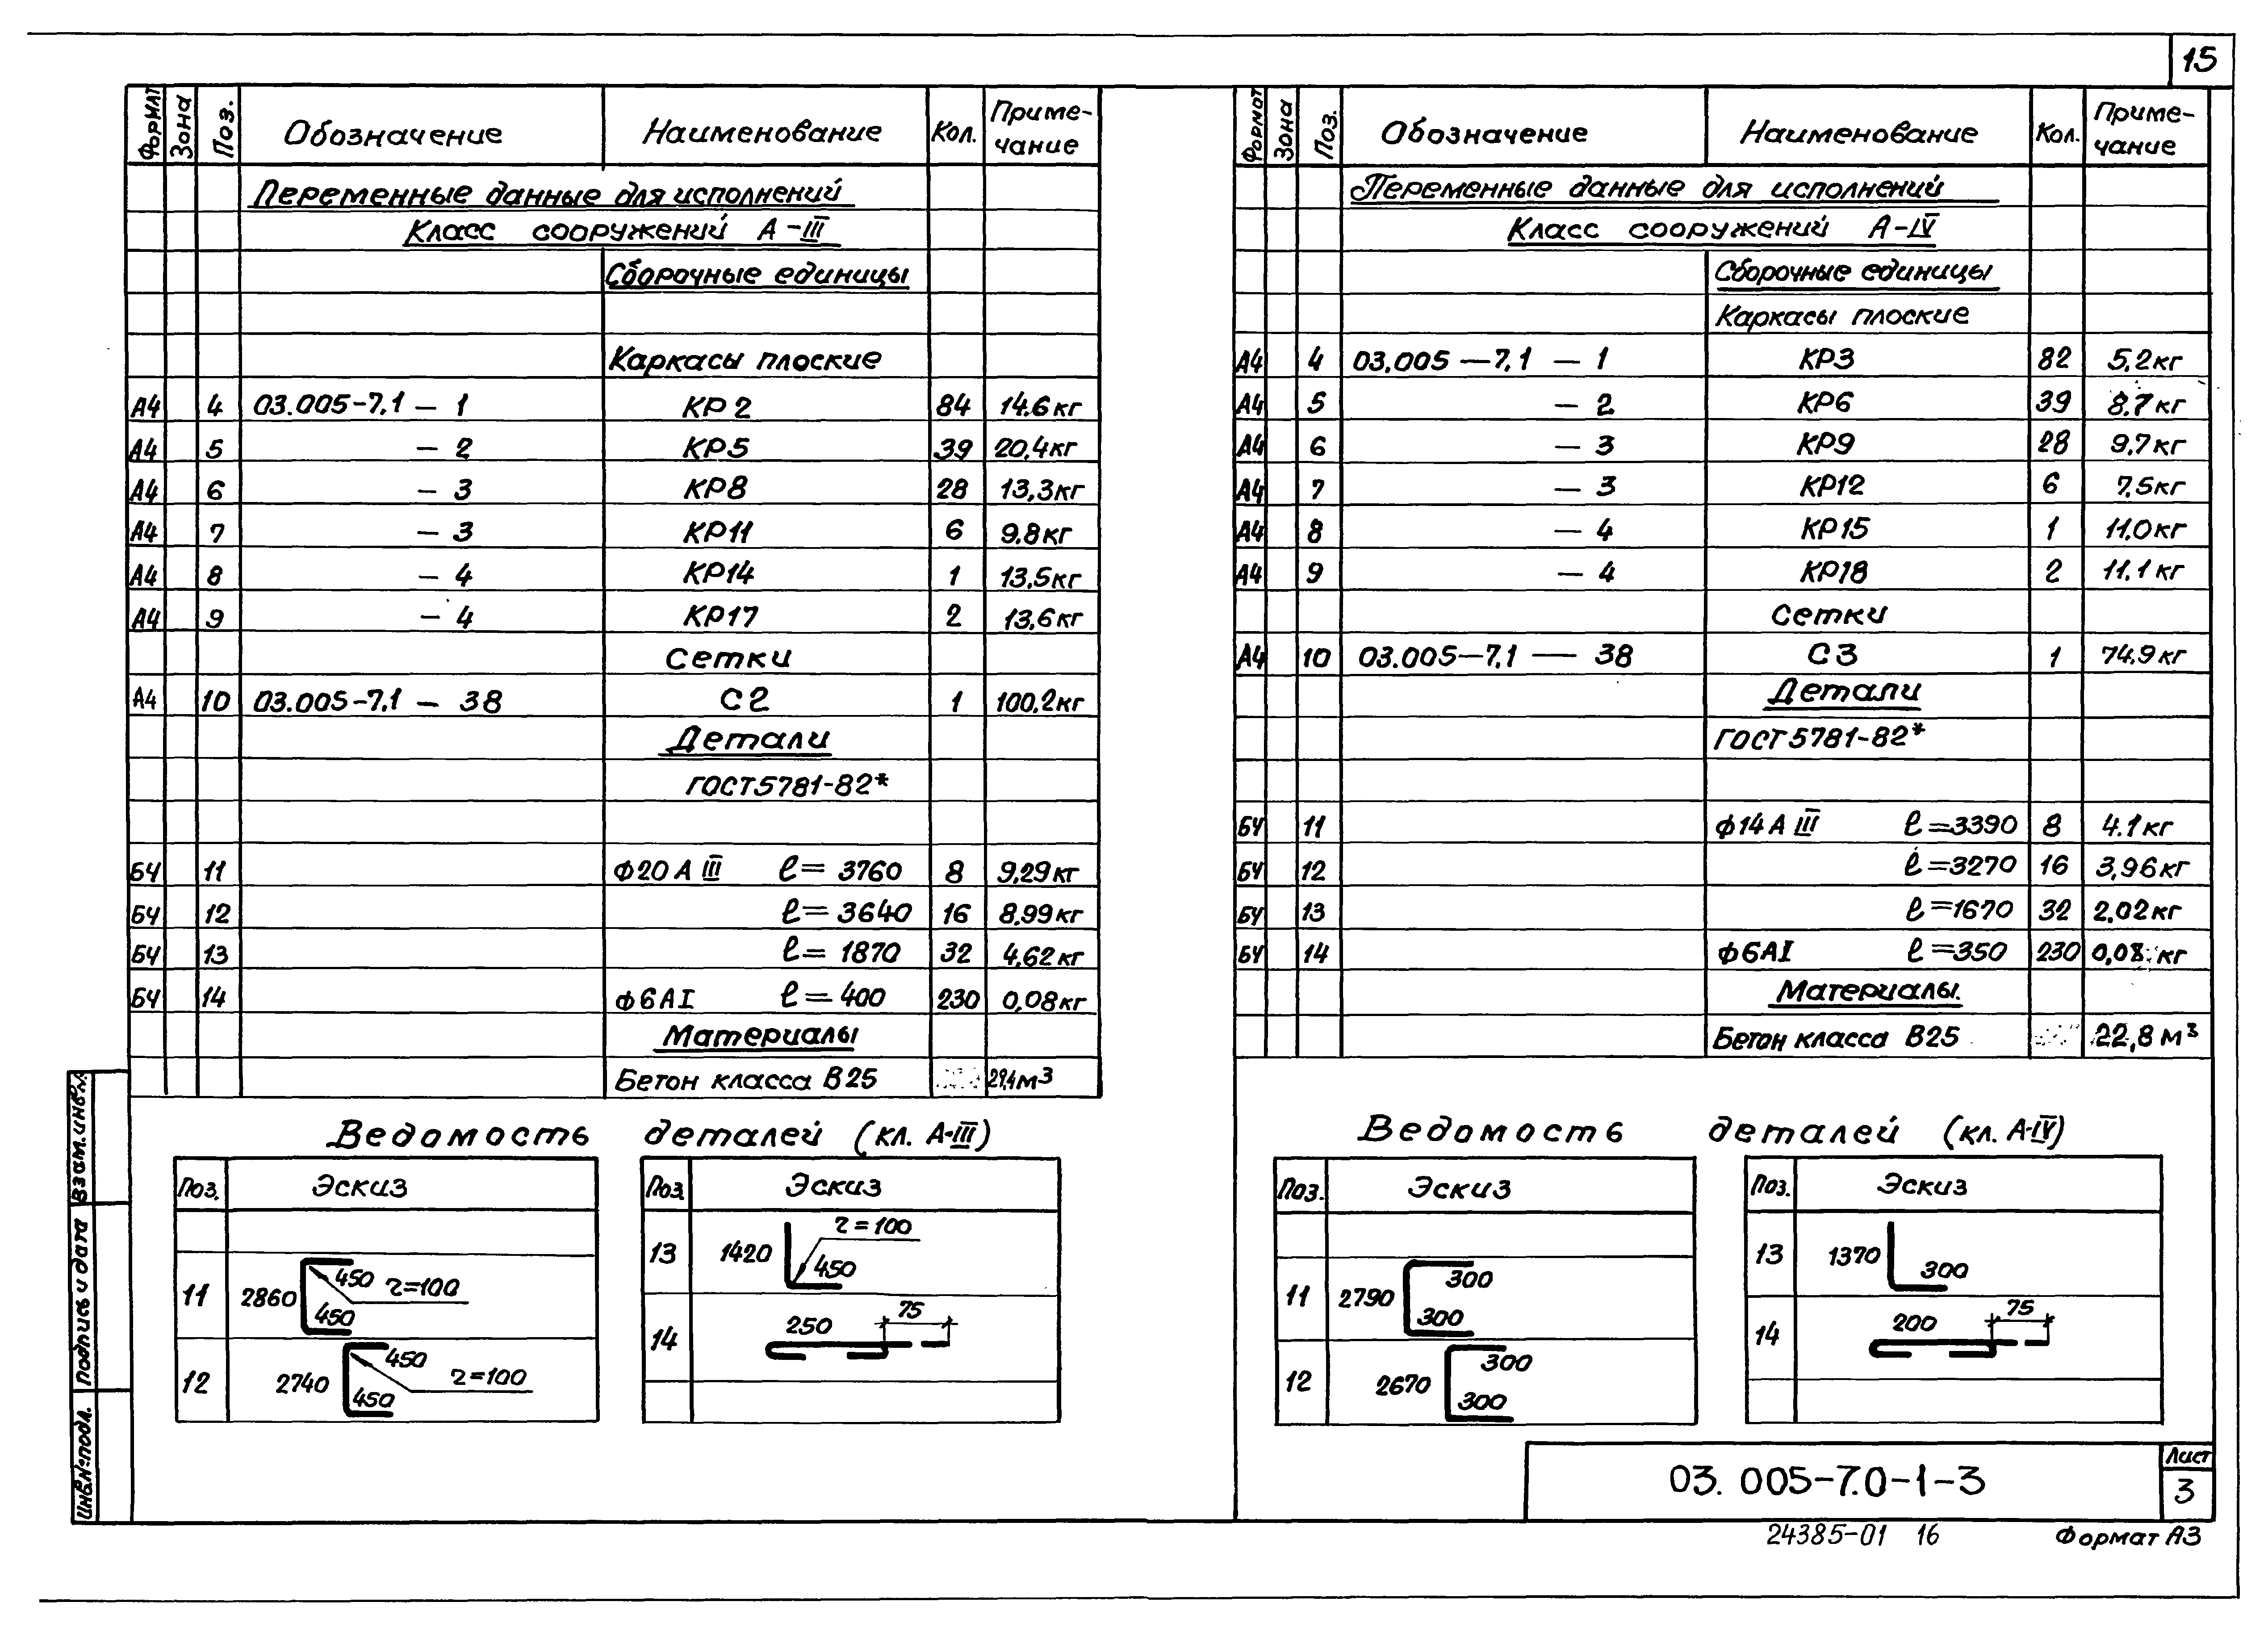 15
Формат Зона Поз. Обозначение Наименование Кол. Приме-чание
Переменные данные для исполнений
Класс сооружений А-III
Сборочные единицы
Каркасы плоские
А4 4 03.005-7.1 - 1 КР2 84 14.6кг
А4 5 - 2 КР5 39 20,4кг
А4 6 - 3 КР8 28 13,3кг
А4 7 - 3 КР11 6 9.8кг
А4 8 - 4 КР14 1 13,5кг
А4 9 - 4 КР17 2 13,6кг
Сетки
А4 10 03.005-7.1 - 38 С2 1 100,2кг
Детали
ГОСТ5781-82*
БЧ 11 ф20АIII ℓ=3760 8 9.29кг
БЧ 12 ℓ=3640 16 8.99кг
БЧ 13 ℓ=1870 32 4.62кг
БЧ 14 ф6АI ℓ=400 230 0,08кг
Материалы
Бетон класса В25 29,4м³
Ведомость деталей (кл. А-III)
Поз. Эскиз
11 2860 450 450 r=100
12 2740 450 450 r=100
Поз. Эскиз
13 1420 r=100 450
14 250 75
Формат Зона Поз. Обозначение Наименование Кол. Приме-чание
Переменные данные для исполнений
Класс сооружений А-IV
Сборочные единицы
Каркасы плоские
А4 4 03.005-7.1 - 1 КР3 82 5,2кг
А4 5 - 2 КР6 39 8.7кг
А4 6 - 3 КР9 28 9,7кг
А4 7 - 3 КР12 6 7,5кг
А4 8 - 4 КР15 1 11,0кг
А4 9 - 4 КР18 2 11,1кг
Сетки
А4 10 03.005-7.1 - 38 С3 1 74,9кг
Детали
ГОСТ5781-82*
БЧ 11 ф14АIII ℓ=3390 8 4.1кг
БЧ 12 ℓ=3270 16 3,96кг
БЧ 13 ℓ=1670 32 2.02кг
БЧ 14 ф6АI ℓ=350 230 0,08кг
Материалы.
Бетон класса В25 22,8м³
Ведомость деталей (кл. А-IV)
Поз. Эскиз
11 2790 300 300
12 2670 300 300
Поз. Эскиз
13 1370 300
14 200 75
Взам.инв.
Подпись и дата
Инв.№подл.
03.005-7.0-1-3
Лист
3
24385-01 16
Формат А3